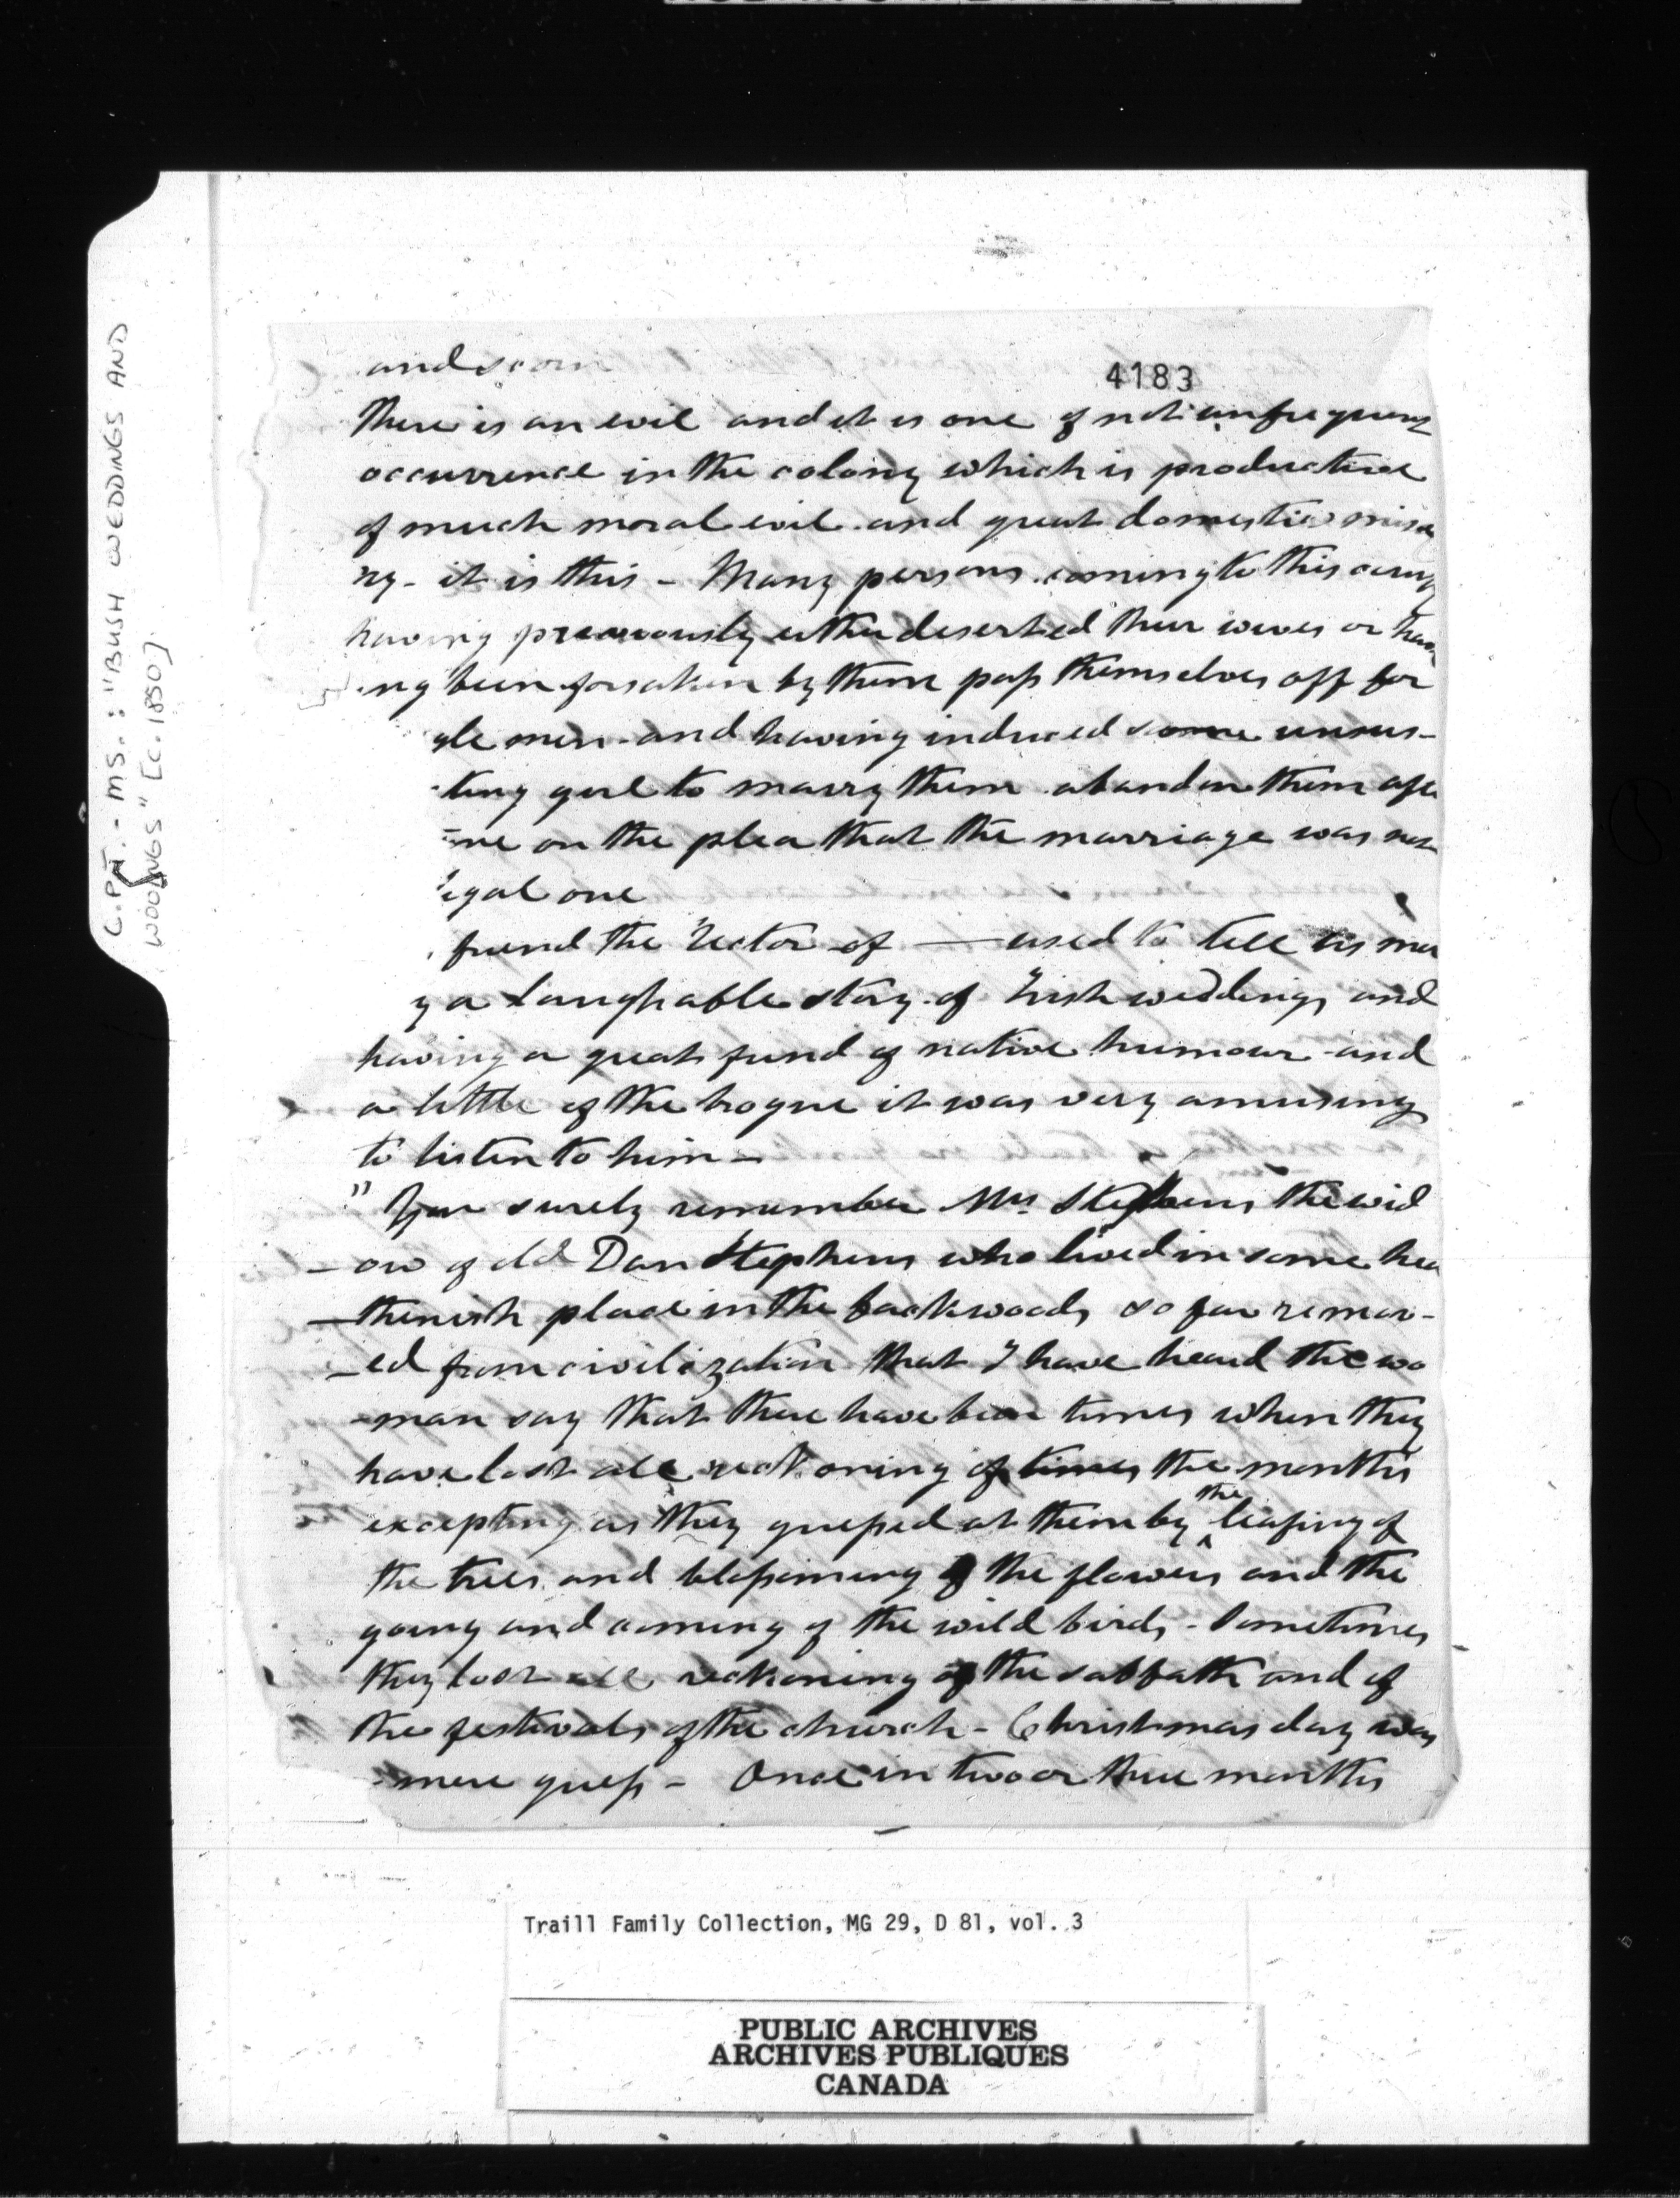 C.P.T. - MS.: "BUSH WEDDINGS AND
WOOINGS" [c. 1850]
4183
and scorn
There is an evil and it is one of not unfrequent
occurrence in the colony which is productive
of much moral evil and great domestic mise
ry - it is this - Many persons coming to this
having previously either deserted their wives or hav
ing been forsaken by them pass themselves off for
gle men - and having induced some unsus-
ting girl to marry them abandon them
me on the plea that the marriage was not
legal one
friend the Rector of — used to tell us man
y a laughable story of Irish weddings and
having a great fund of native humour and
a little of the brogue it was very amusing
to listen to him -
" You surely remember Mrs Stephens the wid
- ow of old Dan Stephens who lived in some hea
- thenish place in the backwoods so far remov-
- ed from civilization that I have heard the wo
- man say that there have been times when they
have lost all reckoning of times the months
excepting as they guessed at them by the leafing of
the trees and blossoming of the flowers and the
going and coming of the wild birds - Sometimes
they lost all reckoning of the sabbath and of
the festivals of the church - Christmas day was
mere guess - Once in two or three months
Traill Family Collection, MG 29, D 81, vol. 3
PUBLIC ARCHIVES
ARCHIVES PUBLIQUES
CANADA